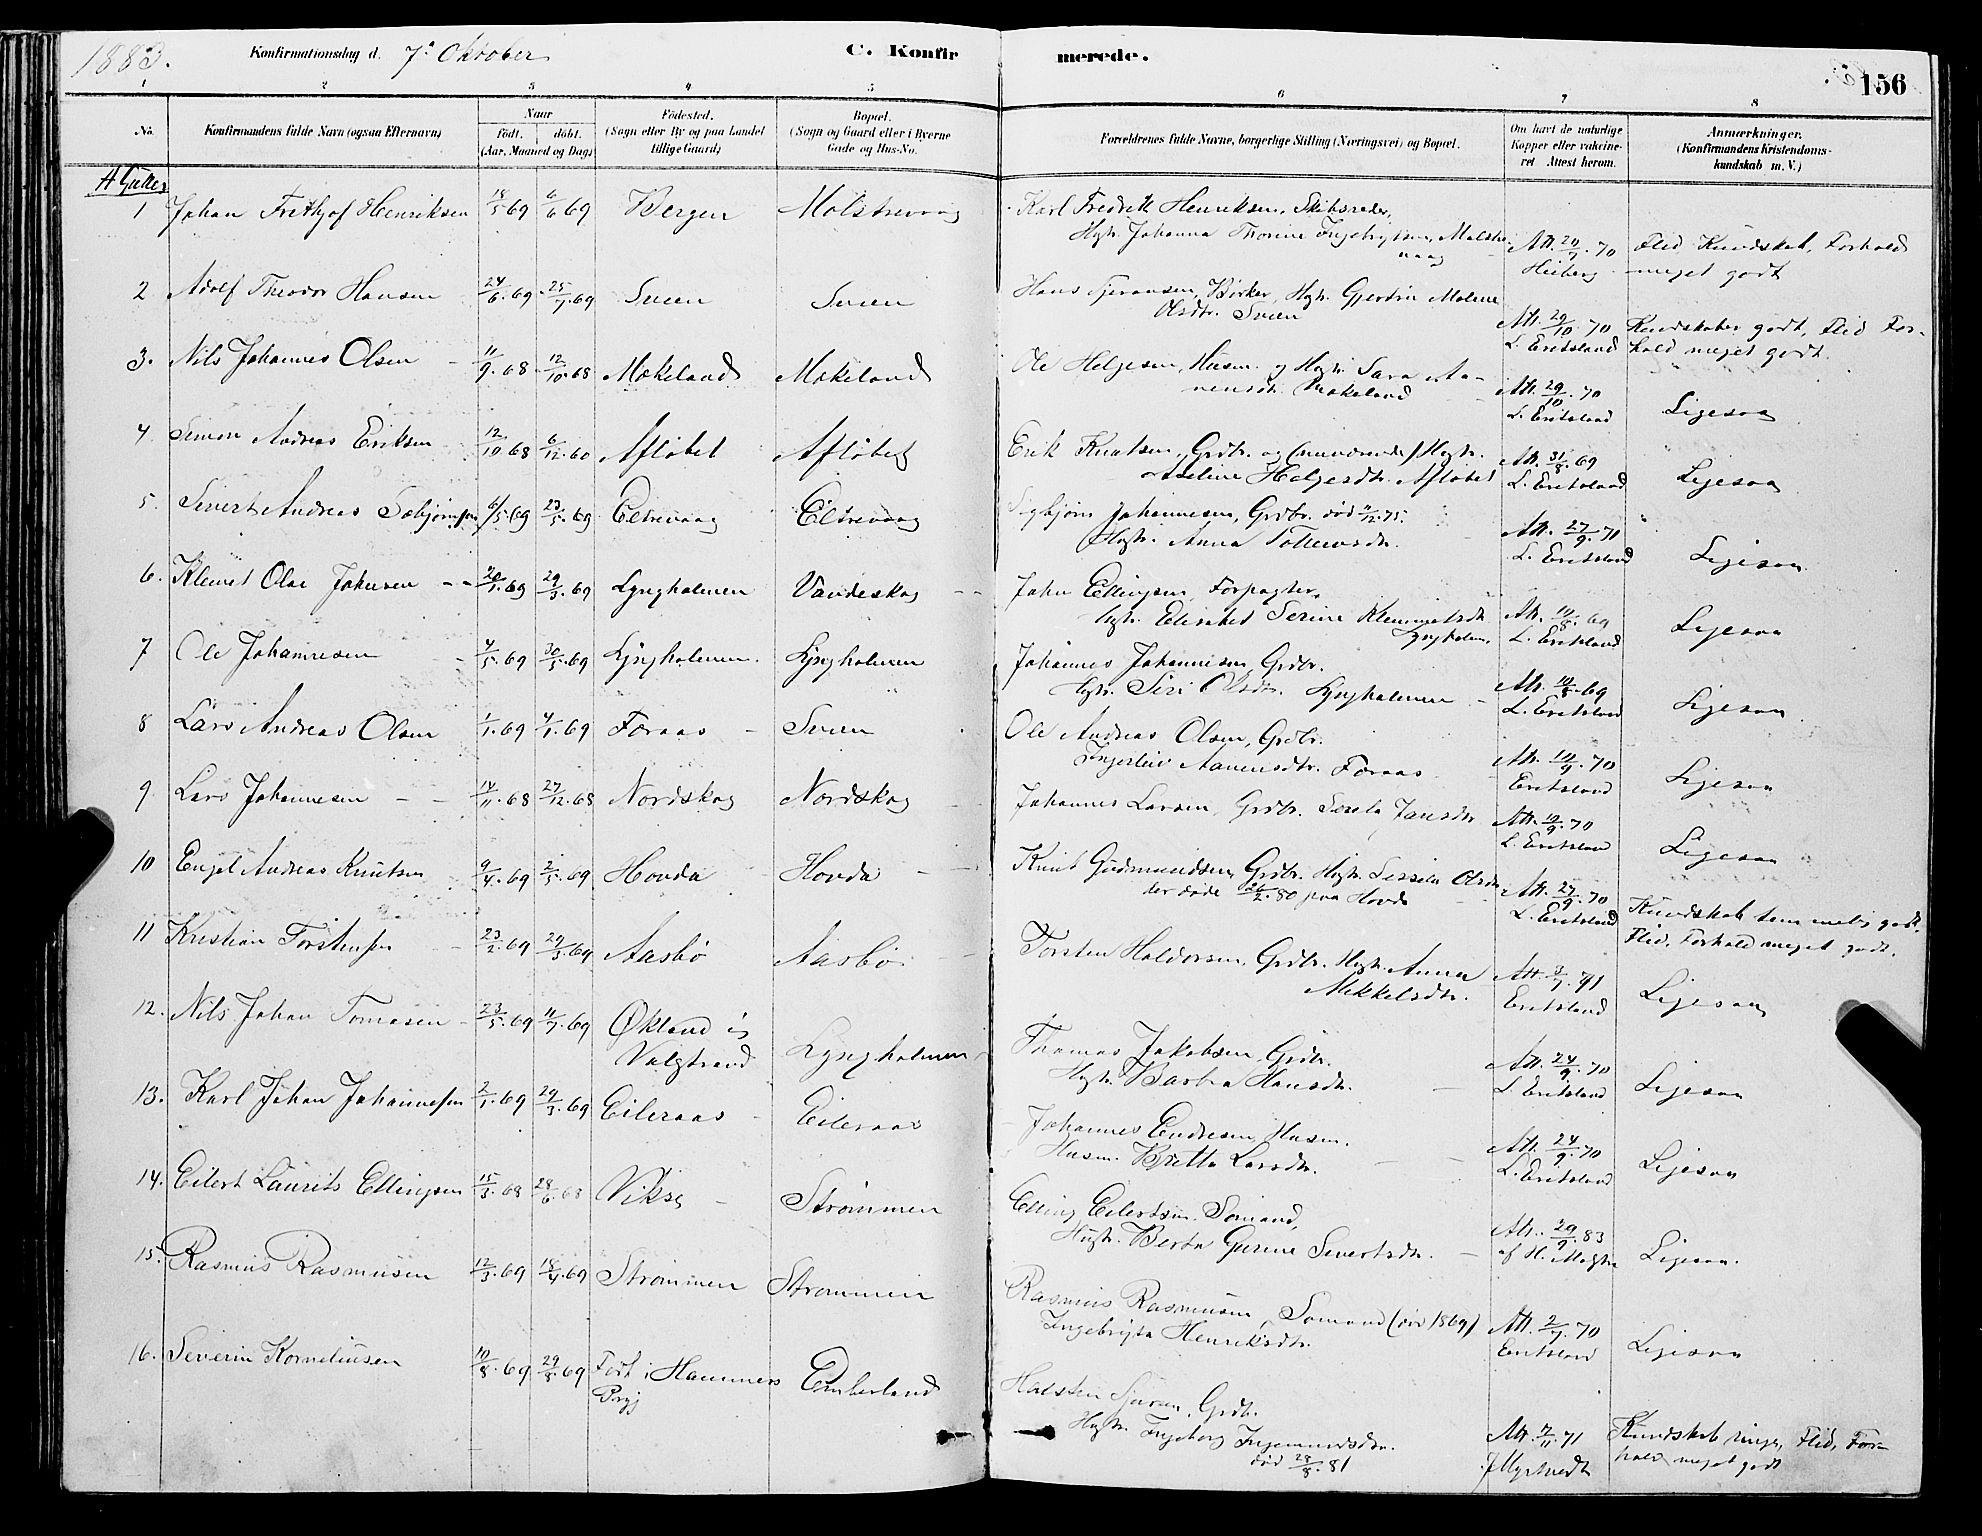 1883.
Konfirmationsdag d. 7de Oktober
C. Konfirmerede.
156
1 2 3 4 5 6 7 8
No.
Konfirmandens fulde Navn (ogsaa Efternavn)
Naar
født. døbt.
(Aar, Maaned og Dag)
Fødested.
(Sogn eller By og paa Landet
tillige Gaard)
Bopæl.
(Sogn og Gaard eller i Byerne
Gade og Hus-No.
Forældrenes fulde Navne, borgerlige Stilling (Næringsvei) og Bopæl.
Om havt de naturlige
Kopper eller vakcine-
ret Attest herom.
Anmærkninger.
(Konfirmandens Kristendoms-
kundskab m. V.)
A Gutter
1 Johan Frithjof Henriksen 18/5 69 6/6 69 Bergen Molstrevaag
Karl Fredrik Henriksen, Skibsreder,
Hstr. Johanna Thorine Ingebrigtsen, Molstre-
vaag
Att. 20/7 70
Heiberg
Flid, Kundskab, Forhold
meget godt
2 Adolf Theodor Hansen 24/6 69 25/7 69 Sveen Sveen
Hans Hstr. Gjertrin Malene
Olsdtr. Sveen
Att. 29/10 70
L. Erikstand
Kundskaber godt, Flid For-
hold meget godt.
3. Nils Johannes Olsen 11/9 68 12/10 68 Mækeland Mækeland
Ole Helgesen, Husm. og Hstr. Sara Aa-
nensdtr. Mækeland
Att. 29/10 70
L. Eritsland
Ligesaa
4 Simon Andreas Eriksen 12/10 68 6/12 60 Afløbet Afløbet
Erik Knutsen, Grdbr. og (nuværende) Hstr.
Helgesdtr. Afløbet
Att. 31/8 69
L. Eritsland
Ligesaa
5. Sivert Andreas 6/5 69 23/5 69 Eltrevaag Eltrevaag
Sigbjørn Johannesen, Grdbr. død 2/12 75.
Hstr. Anna
Att. 27/9 71
L. Eritsland
Ligesaa
6. Klemet Olai Johnsen 20/1 69 29/3 69 Lyngholmen Vandeskog
John Ellingsen, Forpagter,
Hstr. Elisabet Serine Klemmetsdtr
Lyngholm.
Att. 10/8 69
L. Eritsland
Ligesaa
7 Ole Johannesen 4/5 69 30/5 69 Lyngholmen. Lyngholmen
Johannes Johannesen, Grdbr.
Hstr. Siri Olsdtr. Lyngholmen
Att. 10/8 69
L. Eritsland
Ligesaa
8 Lars Andreas Olsen 1/1 69 4/1 69 Foraas Sveen
Ole Andreas Olsen, Grdbr.
Aanensdtr. Foraas
Att. 10/9 70
Eritsland
Ligesaa
9. Lars Johannesen 14/11 68 27/12 68 Nordskog Nordskog
Johannes Larsen, Grdbr. Jansdtr
Att. 10/9 70
L. Eritsland
Ligesaa
10 Engel Andreas Knutsen 9/4 69 2/5 69 Hovda Hovda
Knut Gudmundsen, Grdbr. Hstr. Olsdtr
der døde 26/2 80 paa Hovda
Att. 27/9 70
L. Eritsland
Kundskab temmelig godt.
Flid, Forhold meget godt.
11 Kristian Torstensen 23/2 69 29/3 69 Aasbø Aasbø
Torsten Haldorsen, Grdbr. Hstr. Anna
Mikkelsdtr.
Att. 3/7 71
Eritsland
Ligesaa
12. Nils Johan Tomasen 23/5 69 11/7 69 Økland i
Valestrand Lyngholmen
Thomas Jakobsen, Grdbr.
Hstr. Barbra Hansdtr.
Att. 24/9 70
L. Eritsland
Ligesaa
13. Karl Johan Johannesen 2/1 69 29/3 69 Eileraas Eileraas
Johannes Endresen Husm.
Husm. Britta Larsdtr.
Att. 24/9 70
L. Eritsland
Ligesaa
14. Eilert Laurits Ellingsen 15/3 68 28/6 68 Vikse Strømmen
Elling Eilertsen Sømand,
Hustr. Berta Gurine Severtsdtr.
Att. 29/9 83
af H.
Ligesaa.
15. Rasmus Rasmussen 12/3 69 18/4 69 Strømmen Strømmen
Rasmus Rasmussen, Sømand (død 1869)
Ingebrigta Henriksdtr.
Att. 2/7 70
Eritsland
Ligesaa
16. Severin Korneliusen 10/8 69 29/8 69 Født i Hammers
Prgj Emberland
Halsten Grdbr.
Hstr. Ingeborg
død 28/8 81
Att. 7/11 71
Kundskab ringe, Flid, For-
hold meget godt